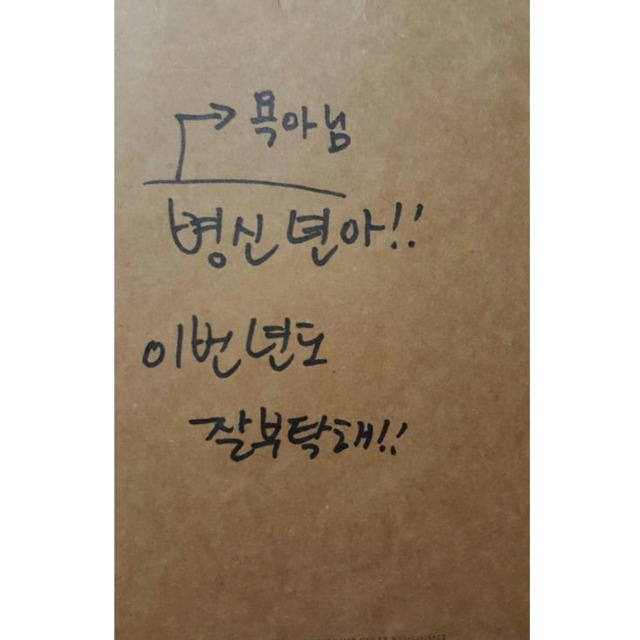 → 묙아님
병신년아!!
이번년도
잘부탁해!!